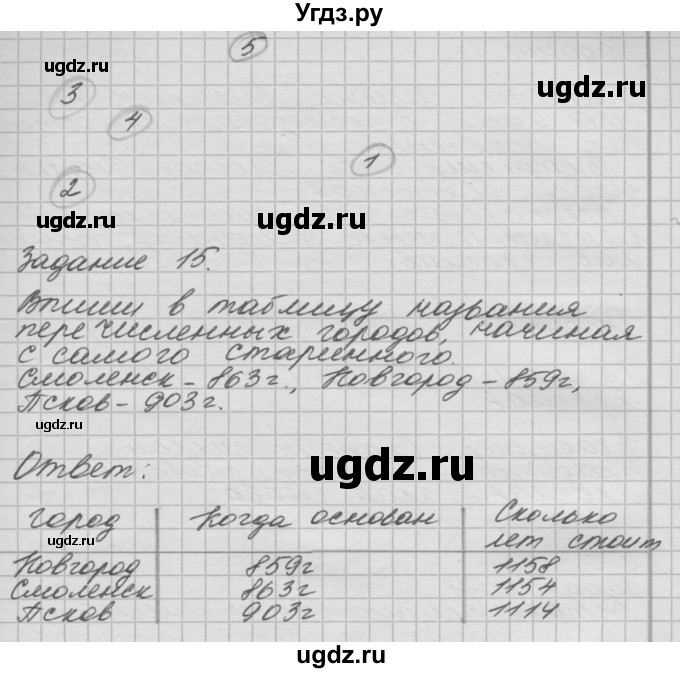 Угдз.ру
5
ugdz.ru
ugdz.ru
3
4
1
2
ugdz.ru
ugdz.ru
Задание 15.
Впиши в таблицу названия
перечисленных городов, начиная
с самого старинного.
Смоленск - 863г., Новгород - 859г,
Псков - 903г.
ugdz.ru
Ответ:
ugdz.ru
город | Когда основан | Сколько лет стоит
ugdz.ru
Новгород 859г 1158
Смоленск 863г 1154
Псков 903г 1114
ugdz.ru
ugdz.ru